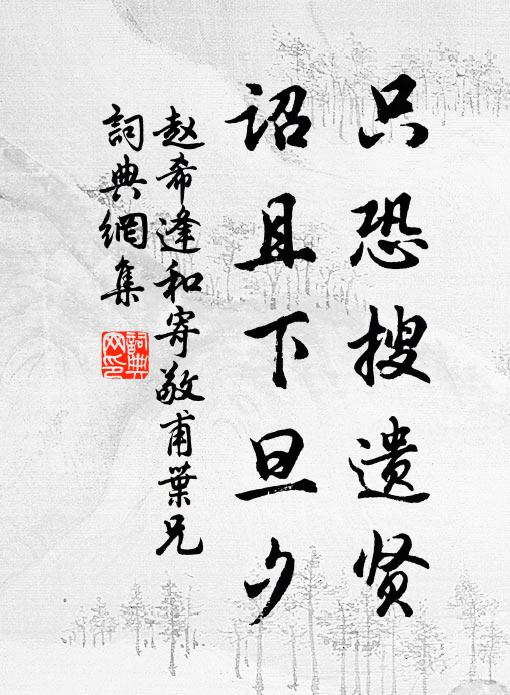 只恐搜遗贤
诏且下旦夕
赵希逢和寄敬甫葉兄
詞典網集
詞典网印